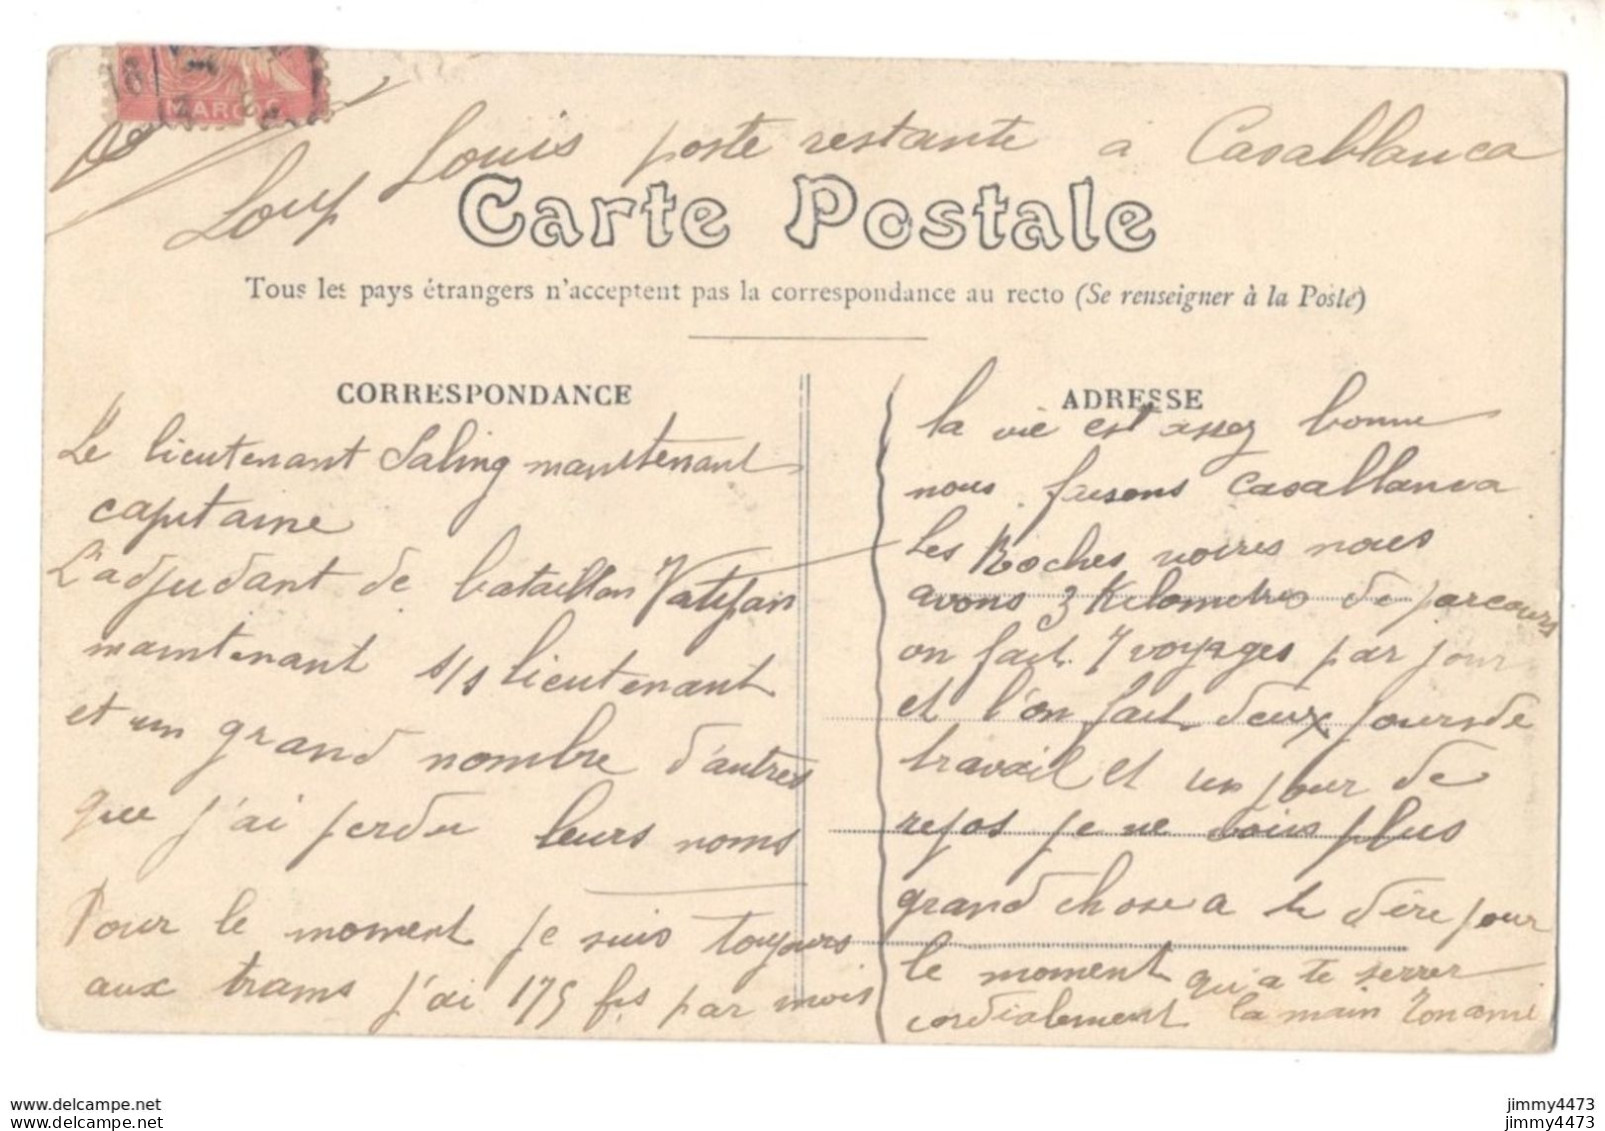 MAROC
Louis poste restante a Casablanca
Loup
Carte Postale
Tous les pays étrangers n'acceptent pas la correspondance au recto (Se renseigner à la Poste)
CORRESPONDANCE
Le lieutenant Saling maintenant
capitaine
L'adjudant de bataillon
maintenant s/s lieutenant
et un grand nombre d'autres
que j'ai perdu leurs noms
Pour le moment je suis toujours
aux trams j'ai 175 frs par mois
ADRESSE
la vie est assez bonne
nous faisons Casablanca
les Roches noires nous
avons 3 Kilometres de parcours
on fait 7 voyages par jour
et l'on fait deux jours de
travail et un jour de
repos je ne vois plus
grand chose a te dire pour
le moment qu'a te serrer
cordialement la main Ton ami
www.delcampe.net
www.delcampe.net
jimmy4473
jimmy4473